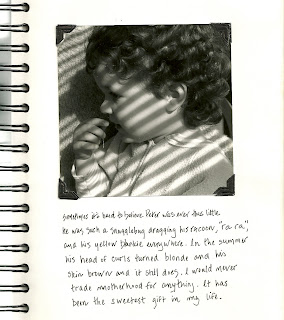 sometimes it's hard to believe Peter was ever this little.
He was such a snugglebug dragging his racoon, "ra ra",
and his yellow blankie everywhere. In the summer
his head of curls turned blonde and his
skin brown and it still does. I would never
trade motherhood for anything. It has
been the sweetest gift in my life.